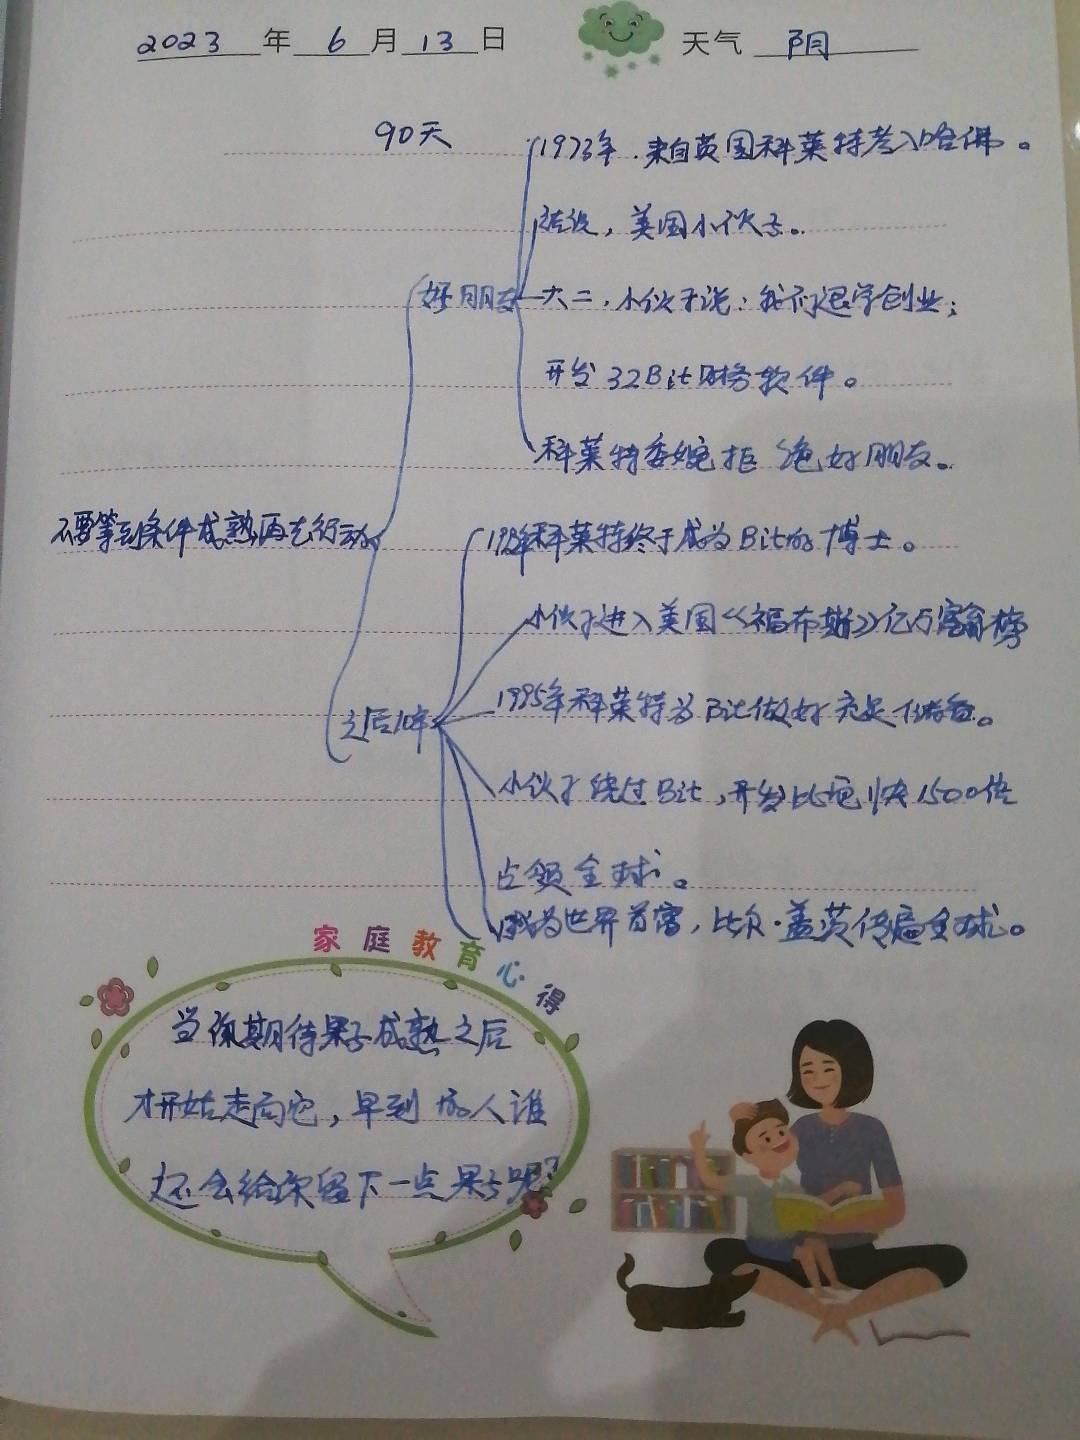 2023年6月13日 天气 阴
90天
1973年.来自英国科莱特考入哈佛。
结识,美国小伙子。
好朋友 大二,小伙子说:我们退学创业;
开发32Bit财务软件。
科莱特委婉拒绝好朋友。
不要等到条件成熟再去行动
科莱特终于成为Bit的博士。
小伙子进入美国《福布斯》亿万富翁榜
之后10年 1995年科莱特为Bit做好充足储备。
小伙子绕过Bit,开发比它快1500倍
占领全球。
成为世界首富,比尔·盖茨传遍全球。
家庭教育心得
当你期待果子成熟之后
才开始走向它,早到的人谁
还会给你留下一点果子呢?